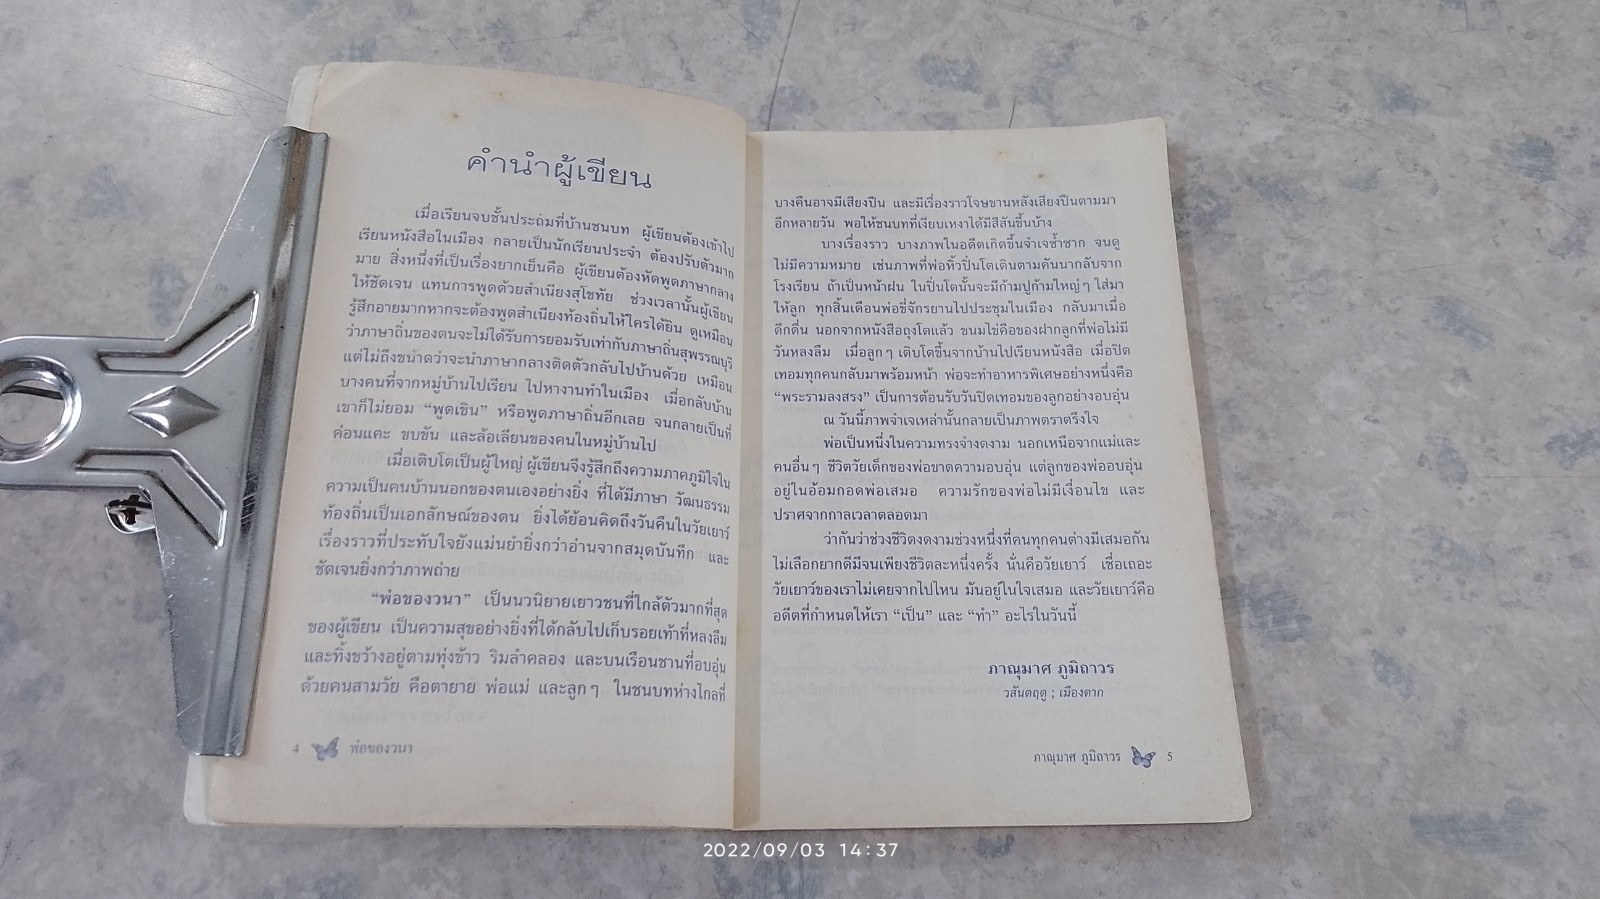 คำนำผู้เขียน
เมื่อเรียนจบชั้นประถมที่บ้านชนบท ผู้เขียนต้องเข้าไป
เรียนหนังสือในเมือง กลายเป็นนักเรียนประจำ ต้องปรับตัวมาก
มาย สิ่งหนึ่งที่เป็นเรื่องยากเย็นคือ ผู้เขียนต้องหัดพูดภาษากลาง
ให้ชัดเจน แทนการพูดด้วยสำเนียงสุโขทัย ช่วงเวลานั้นผู้เขียน
รู้สึกอายมากหากจะต้องพูดสำเนียงท้องถิ่นให้ใครได้ยิน ดูเหมือน
ว่าภาษาถิ่นของตนจะไม่ได้รับการยอมรับเท่ากับภาษาถิ่นสุพรรณบุรี
แต่ไม่ถึงขนาดว่าจะนำภาษากลางติดตัวกลับไปบ้านด้วย เหมือน
บางคนที่จากหมู่บ้านไปเรียน ไปหางานทำในเมือง เมื่อกลับบ้าน
เขาก็ไม่ยอม “พูดเชิน” หรือพูดภาษาถิ่นอีกเลย จนกลายเป็นที่
ค่อนแคะ ขบขัน และล้อเลียนของคนในหมู่บ้านไป
เมื่อเติบโตเป็นผู้ใหญ่ ผู้เขียนจึงรู้สึกถึงความภาคภูมิใจใน
ความเป็นคนบ้านนอกของตนเองอย่างยิ่ง ที่ได้มีภาษา วัฒนธรรม
ท้องถิ่นเป็นเอกลักษณ์ของตน ยิ่งได้ย้อนคิดถึงวันคืนในวัยเยาว์
เรื่องราวที่ประทับใจยังแม่นยำยิ่งกว่าอ่านจากสมุดบันทึก และ
ชัดเจนยิ่งกว่าภาพถ่าย
“พ่อของวนา” เป็นนวนิยายเยาวชนที่ใกล้ตัวมากที่สุด
ของผู้เขียน เป็นความสุขอย่างยิ่งที่ได้กลับไปเก็บรอยเท้าที่หลงลืม
และทิ้งขว้างอยู่ตามทุ่งข้าว ริมลำคลอง และบนเรือนชานที่อบอุ่น
ด้วยคนสามวัย คือตายาย พ่อแม่ และลูกๆ ในชนบทห่างไกลที่
4 พ่อของวนา
บางคืนอาจมีเสียงปืน และมีเรื่องราวโจษขานหลังเสียงปืนตามมา
อีกหลายวัน พอให้ชนบทที่เงียบเหงาได้มีสีสันขึ้นบ้าง
บางเรื่องราว บางภาพในอดีตเกิดขึ้นจำเจซ้ำซาก จนดู
ไม่มีความหมาย เช่นภาพที่พ่อหิ้วปิ่นโตเดินตามคันนากลับจาก
โรงเรียน ถ้าเป็นหน้าฝน ในปิ่นโตนั้นจะมีก้ามปูก้ามใหญ่ๆ ใส่มา
ให้ลูก ทุกสิ้นเดือนพ่อขี่จักรยานไปประชุมในเมือง กลับมาเมื่อ
ดึกดื่น นอกจากหนังสือถุงโตแล้ว ขนมไข่คือของฝากลูกที่พ่อไม่มี
วันหลงลืม เมื่อลูกๆ เติบโตขึ้นจากบ้านไปเรียนหนังสือ เมื่อปิด
เทอมทุกคนกลับมาพร้อมหน้า พ่อจะทำอาหารพิเศษอย่างหนึ่งคือ
“พระรามลงสรง” เป็นการต้อนรับวันปิดเทอมของลูกอย่างอบอุ่น
ณ วันนี้ภาพจำเจเหล่านั้นกลายเป็นภาพตราตรึงใจ
พ่อเป็นหนึ่งในความทรงจำงดงาม นอกเหนือจากแม่และ
คนอื่นๆ ชีวิตวัยเด็กของพ่อขาดความอบอุ่น แต่ลูกของพ่ออบอุ่น
อยู่ในอ้อมกอดพ่อเสมอ ความรักของพ่อไม่มีเงื่อนไข และ
ปราศจากกาลเวลาตลอดมา
ว่ากันว่าช่วงชีวิตงดงามช่วงหนึ่งที่คนทุกคนต่างมีเสมอกัน
ไม่เลือกยากดีมีจนเพียงชีวิตละหนึ่งครั้ง นั่นคือวัยเยาว์ เชื่อเถอะ
วัยเยาว์ของเราไม่เคยจากไปไหน มันอยู่ในใจเสมอ และวัยเยาว์คือ
อดีตที่กำหนดให้เรา “เป็น” และ “ทำ” อะไรในวันนี้
ภาณุมาศ ภูมิถาวร
วสันตฤดู ; เมืองตาก
ภาณุมาศ ภูมิถาวร 5
2022/09/03 14:37